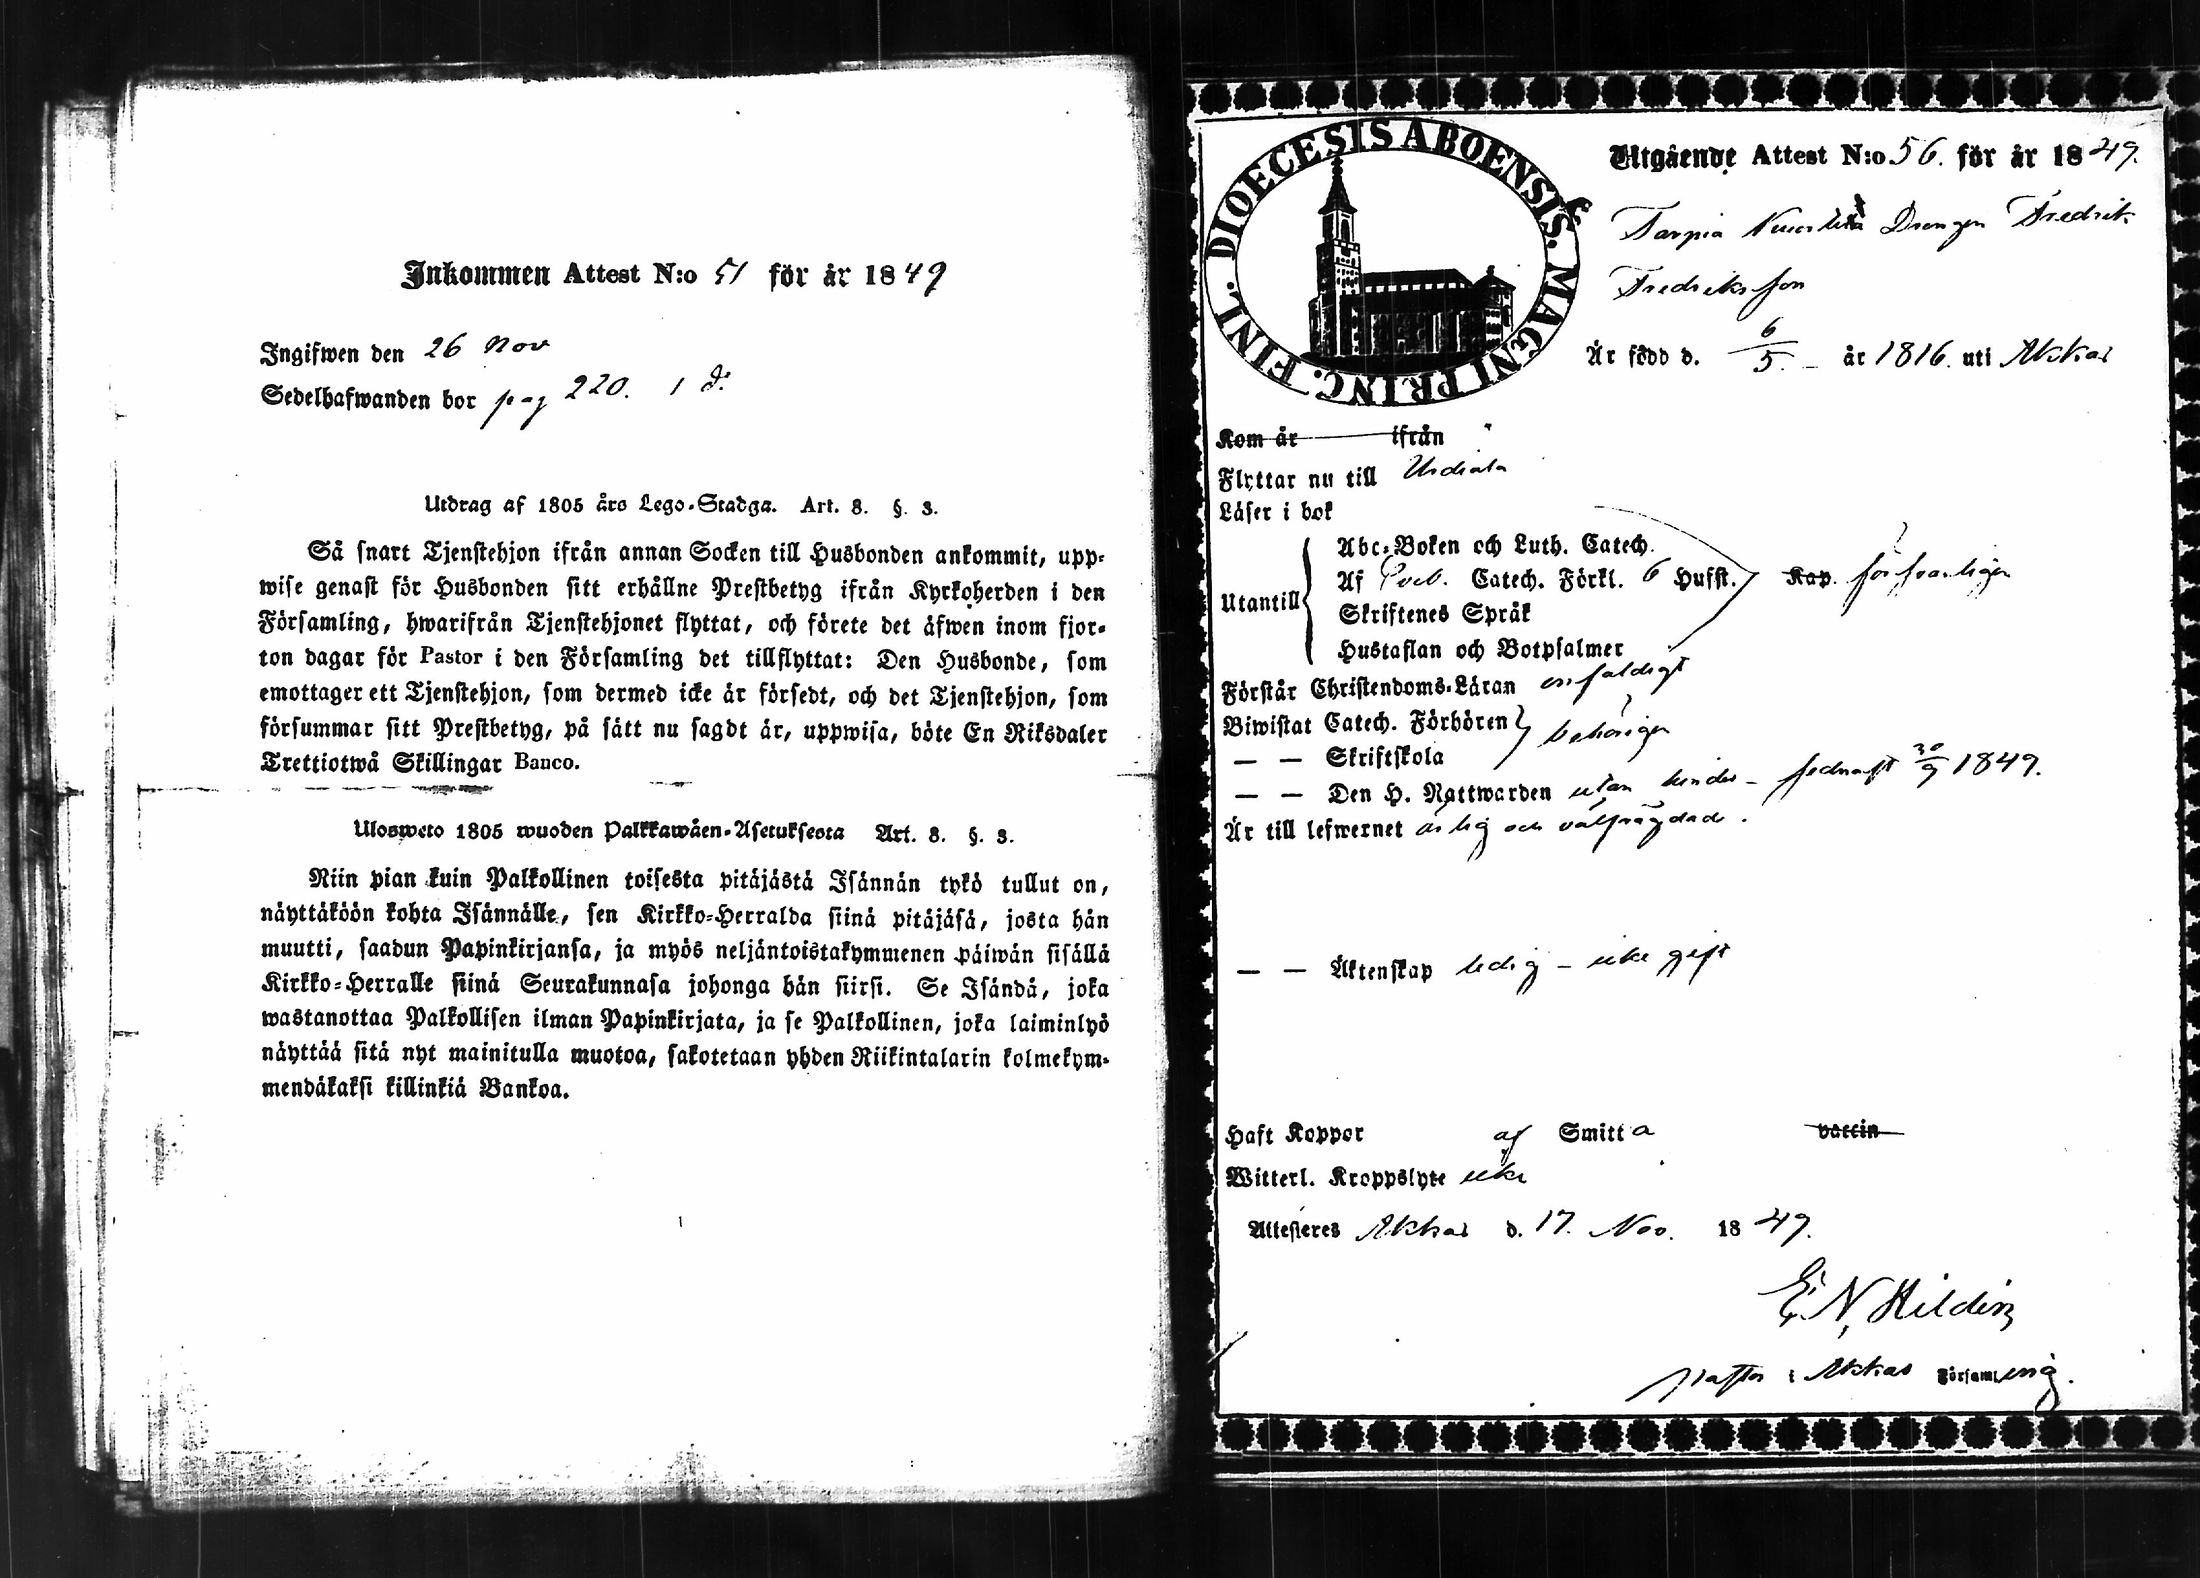 Inkommen Attest N:o 51 för år 1849
Ingifwen den 26 Nov
Sedelhafwanden bor pag 220. 1 d.
Utdrag af 1805 års Lego-Stadga. Art. 8. §. 3.
Så snart Tjenstehjon ifrån annan Socken till Husbonden ankommit, upp-
wise genast för Husbonden sitt erhållne Prestbetyg ifrån Kyrkoherden i den
Församling, hwarifrån Tjenstehjonet flyttat, och förete det äfwen inom fjor-
ton dagar för Pastor i den Församling det tillflyttat: Den Husbonde, som
emottager ett Tjenstehjon, som dermed icke är försedt, och det Tjenstehjon, som
försummar sitt Prestbetyg, på sätt nu sagdt är, uppwisa, böte En Riksdaler
Trettiotwå Skillingar Banco.
Ulosweto 1805 wuoden Palkkawäen-Asetuksesta Art. 8. §. 3.
Niin pian kuin Palkollinen toisesta pitäjästä Isännän tykö tullut on,
näyttäköön kohta Isännälle, sen Kirkko-Herralda siinä pitäjäsä, josta hän
muutti, saadun Papinkirjansa, ja myös neljäntoistakymmenen päiwän sisällä
Kirkko-Herralle siinä Seurakunnasa johonga hän siirsi. Se Isändä, joka
wastanottaa Palkollisen ilman Papinkirjata, ja se Palkollinen, joka laiminlyö
näyttää sitä nyt mainitulla muotoa, sakotetaan yhden Riikintalarin kolmekym-
mendäkaksi killinkiä Bankoa.
DIOECESIS ABOENSIS. MAGNI PRINC. FINL.
Utgående Attest N:o 56. för år 1849.
Tarpia Drengen Fredrik
Fredriksson
Är född d. 6/5. år 1816. uti Akkas
Kom år ifrån
Flyttar nu till Urdiala
Läser i bok
Abc-Boken och Luth. Catech.
Utantill Af Sveb. Catech. Förkl. 6 Hufst. Kap. försvarligen
Skriftenes Språk
Hustaflan och Botpsalmer
Förstår Christendoms-Läran enfaldigt
Biwistat Catech. Förhören behörigen
— — Skriftskola
— — Den H. Nattwarden utan hinder – sednast 30/9 1849.
Är till lefwernet ärlig och välfrägdad.
— — Äktenskap ledig – icke gift
Haft Koppor af Smitta vaccin
Witterl. Kroppslyte icke
Attesteres Akkas d. 17. Nov. 1849.
E. N. Hildén
pastor i Akkas Församling.